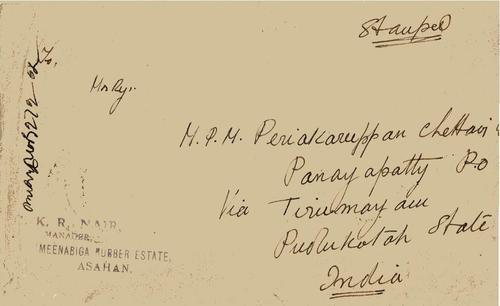 Stamped
To,
M.R.Ry.
M. P. M. Periakaruppan Chettair
Panayapatty P.O
Via Tirumayam
Pudukotah State
India
K. R. NAIR,
MANAGER,
MEENABIGA RUBBER ESTATE,
ASAHAN.